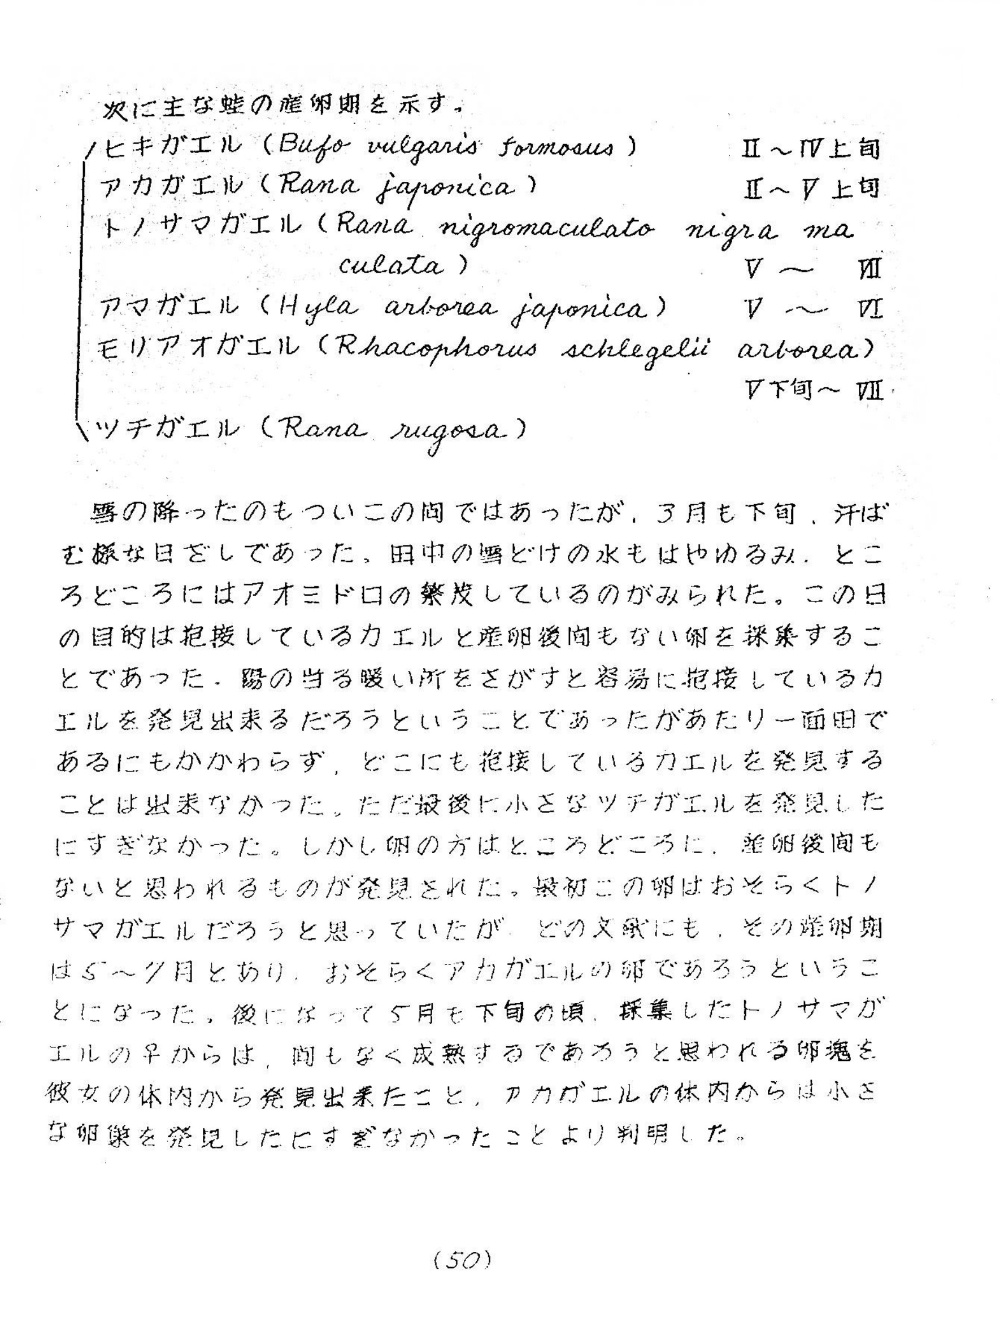 次に主な蛙の産卵期を示す。
ヒキガエル (Bufo vulgaris formosus) Ⅱ～Ⅳ上旬
アカガエル (Rana japonica) Ⅱ～Ⅴ上旬
トノサマガエル (Rana nigromaculato nigra ma
culata) Ⅴ～Ⅶ
アマガエル (Hyla arborea japonica) Ⅴ～Ⅵ
モリアオガエル (Rhacophorus schlegelii arborea)
Ⅴ下旬～Ⅶ
ツチガエル (Rana rugosa)
雪の降ったのもついこの間ではあったが、3月も下旬、汗ば
む様な日ざしであった。田中の雪どけの水もはやゆるみ、とこ
ろどころにはアオミドロの繁茂しているのがみられた。この日
の目的は抱接しているカエルと産卵後間もない卵を採集するこ
とであった。陽の当る暖い所をさがすと容易に抱接しているカ
エルを発見出来るだろうということであったがあたり一面田で
あるにもかかわらず、どこにも抱接しているカエルを発見する
ことは出来なかった。ただ最後に小さなツチガエルを発見した
にすぎなかった。しかし卵の方はところどころに、産卵後間も
ないと思われるものが発見された。最初この卵はおそらくトノ
サマガエルだろうと思っていたが、どの文献にも、その産卵期
は5～7月とあり、おそらくアカガエルの卵であろうというこ
とになった。後になって5月も下旬の頃、採集したトノサマガ
エルの♀からは、間もなく成熟するであろうと思われる卵塊を
彼女の体内から発見出来たこと、アカガエルの体内からは小さ
な卵巣を発見したにすぎなかったことより判明した。
(50)